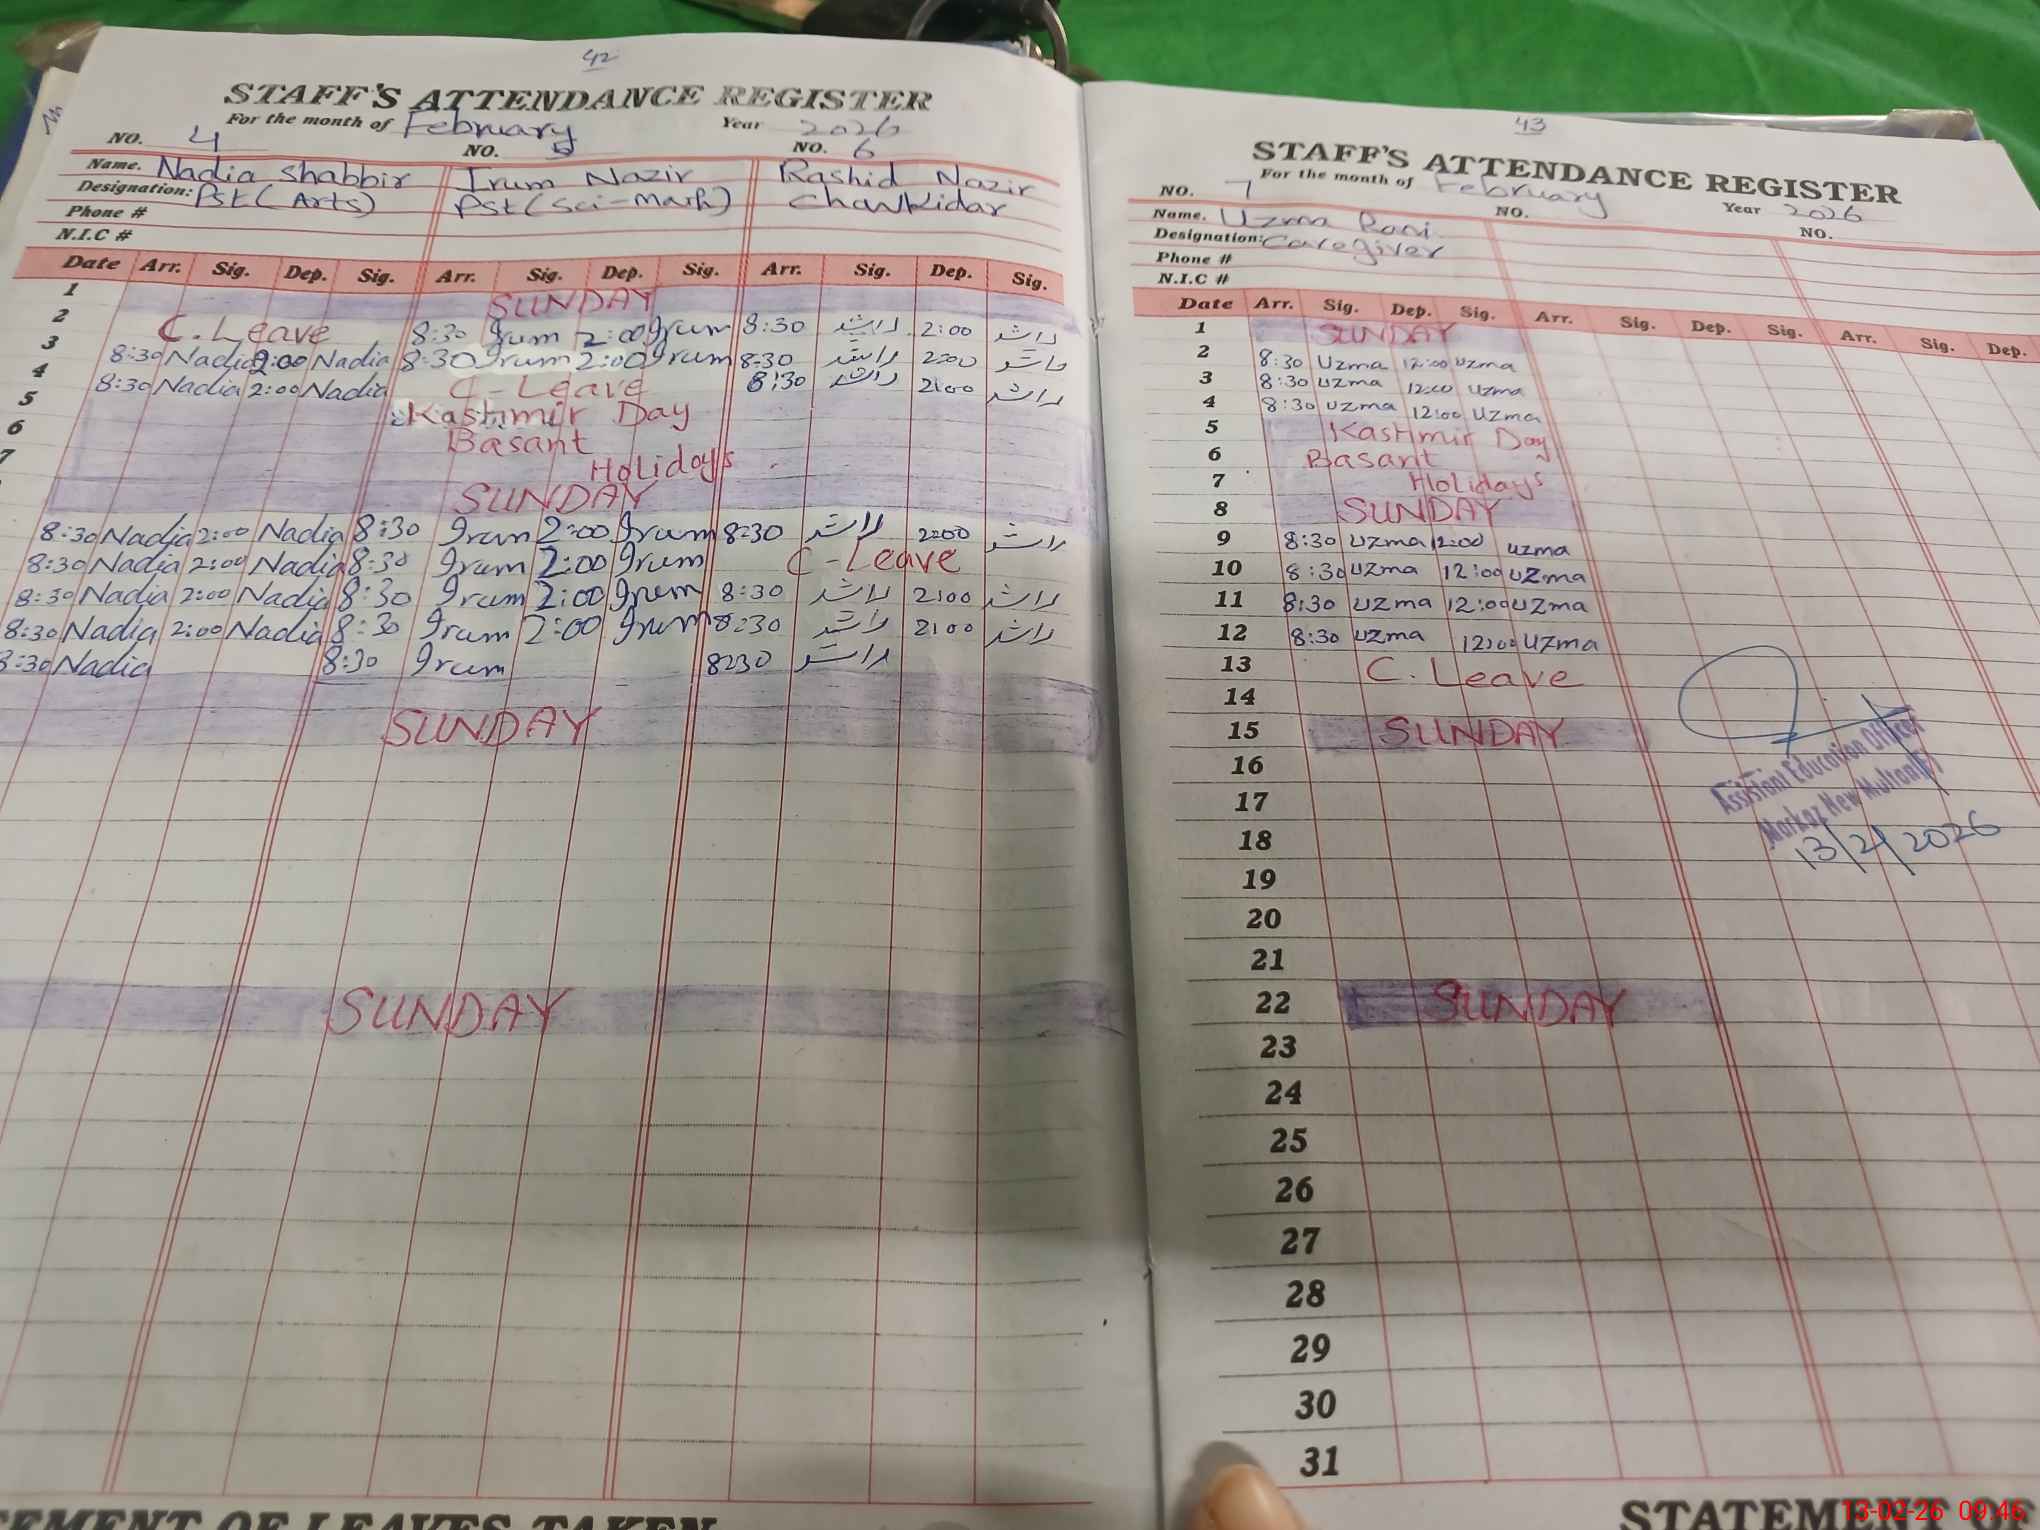 42
STAFF'S ATTENDANCE REGISTER
For the month of February Year 2026
NO. 4 NO. 5 NO. 6
Name. Nadia Shabbir Irum Nazir Rashid Nazir
Designation: Pst (Arts) Pst (Sci-math) Chawkidar
Phone #
N.I.C #
Date Arr. Sig. Dep. Sig. Arr. Sig. Dep. Sig. Arr. Sig. Dep. Sig.
1 SUNDAY
2 C. Leave 8:30 Irum 2:00 Irum 8:30 راشد 2:00 راشد
3 8:30 Nadia 2:00 Nadia 8:30 Irum 2:00 Irum 8:30 راشد 2:00 راشد
4 8:30 Nadia 2:00 Nadia C-Leave 8:30 راشد 2:00 راشد
5 Kashmir Day
6 Basant
7 Holidays
SUNDAY
8:30 Nadia 2:00 Nadia 8:30 Irum 2:00 Irum 8:30 راشد 2:00 راشد
8:30 Nadia 2:00 Nadia 8:30 Irum 2:00 Irum C-Leave
8:30 Nadia 2:00 Nadia 8:30 Irum 2:00 Irum 8:30 راشد 2:00 راشد
8:30 Nadia 2:00 Nadia 8:30 Irum 2:00 Irum 8:30 راشد 2:00 راشد
8:30 Nadia 8:30 Irum 8:30 راشد
SUNDAY
SUNDAY
43
STAFF'S ATTENDANCE REGISTER
For the month of February Year 2026
NO. 7 NO. NO.
Name. Uzma Rani
Designation: Caregiver
Phone #
N.I.C #
Date Arr. Sig. Dep. Sig. Arr. Sig. Dep. Sig. Arr. Sig. Dep.
1 SUNDAY
2 8:30 Uzma 12:00 Uzma
3 8:30 Uzma 12:00 Uzma
4 8:30 Uzma 12:00 Uzma
5 Kashmir Day
6 Basant
7 Holidays
8 SUNDAY
9 8:30 Uzma 12:00 Uzma
10 8:30 Uzma 12:00 Uzma
11 8:30 Uzma 12:00 Uzma
12 8:30 Uzma 12:00 Uzma
13 C. Leave
14
15 SUNDAY
16
17
18
19
20
21
22 SUNDAY
23
24
25
26
27
28
29
30
31
Assistant Education Officer
Markaz New Multan(F)
13/2/2026
STATEMENT OF
13-02-26 09:46
OF LEAVES TAKEN